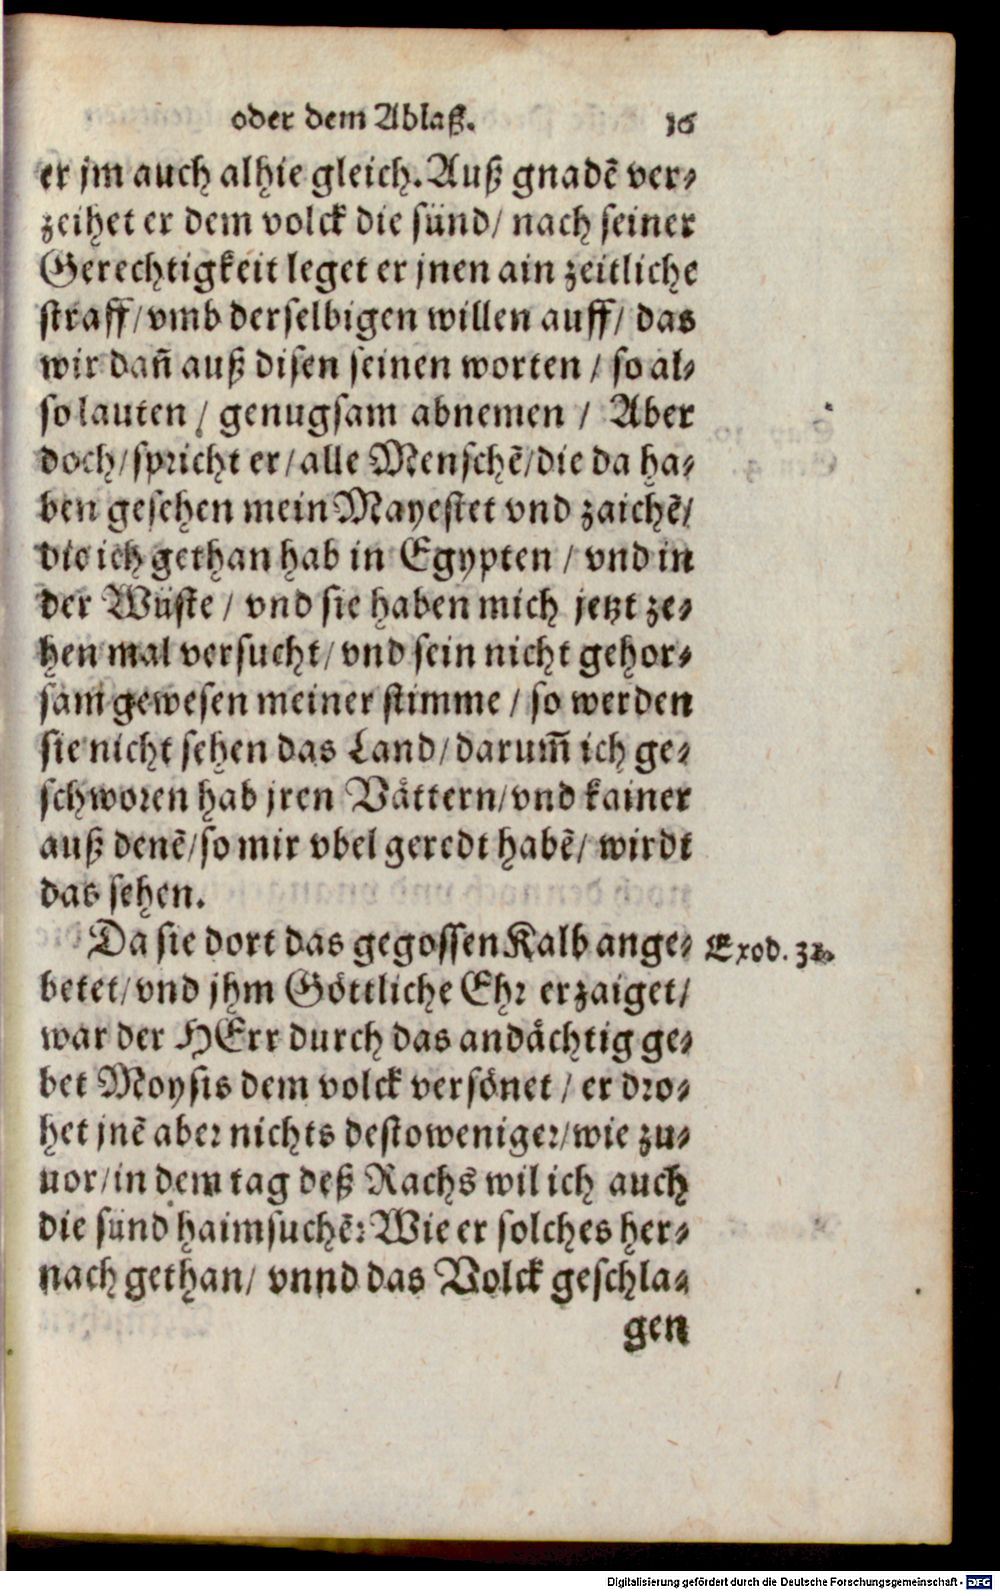 oder dem Ablaß. 16
er jm auch alhie gleich. Auß gnadẽ ver⸗
zeihet er dem volck die sünd/ nach seiner
Gerechtigkeit leget er jnen ain zeitliche
straff/ vmb derselbigen willen auff/ das
wir dañ auß disen seinen worten / so al⸗
so lauten / genugsam abnemen / Aber
doch/ spricht er/ alle Menschẽ/ die da ha⸗
ben gesehen mein Mayestet vnd zaichẽ/
die ich gethan hab in Egypten / vnd in
der Wüste / vnd sie haben mich jetzt ze⸗
hen mal versucht/ vnd sein nicht gehor⸗
sam gewesen meiner stimme / so werden
sie nicht sehen das Land/ darum̃ ich ge⸗
schworen hab jren Vättern/ vnd kainer
auß denẽ/ so mir vbel geredt habẽ/ wirdt
das sehen.
Da sie dort das gegossen Kalb ange⸗ Exod. 32.
betet/ vnd jhm Göttliche Ehr erzaiget/
war der HErr durch das andächtig ge⸗
bet Moysis dem volck versönet / er dro⸗
het jnẽ aber nichts destoweniger/ wie zu⸗
uor/ in dem tag deß Rachs wil ich auch
die sünd haimsuchẽ: Wie er solches her⸗
nach gethan/ vnnd das Volck geschla⸗
gen
Digitalisierung gefördert durch die Deutsche Forschungsgemeinschaft - DFG